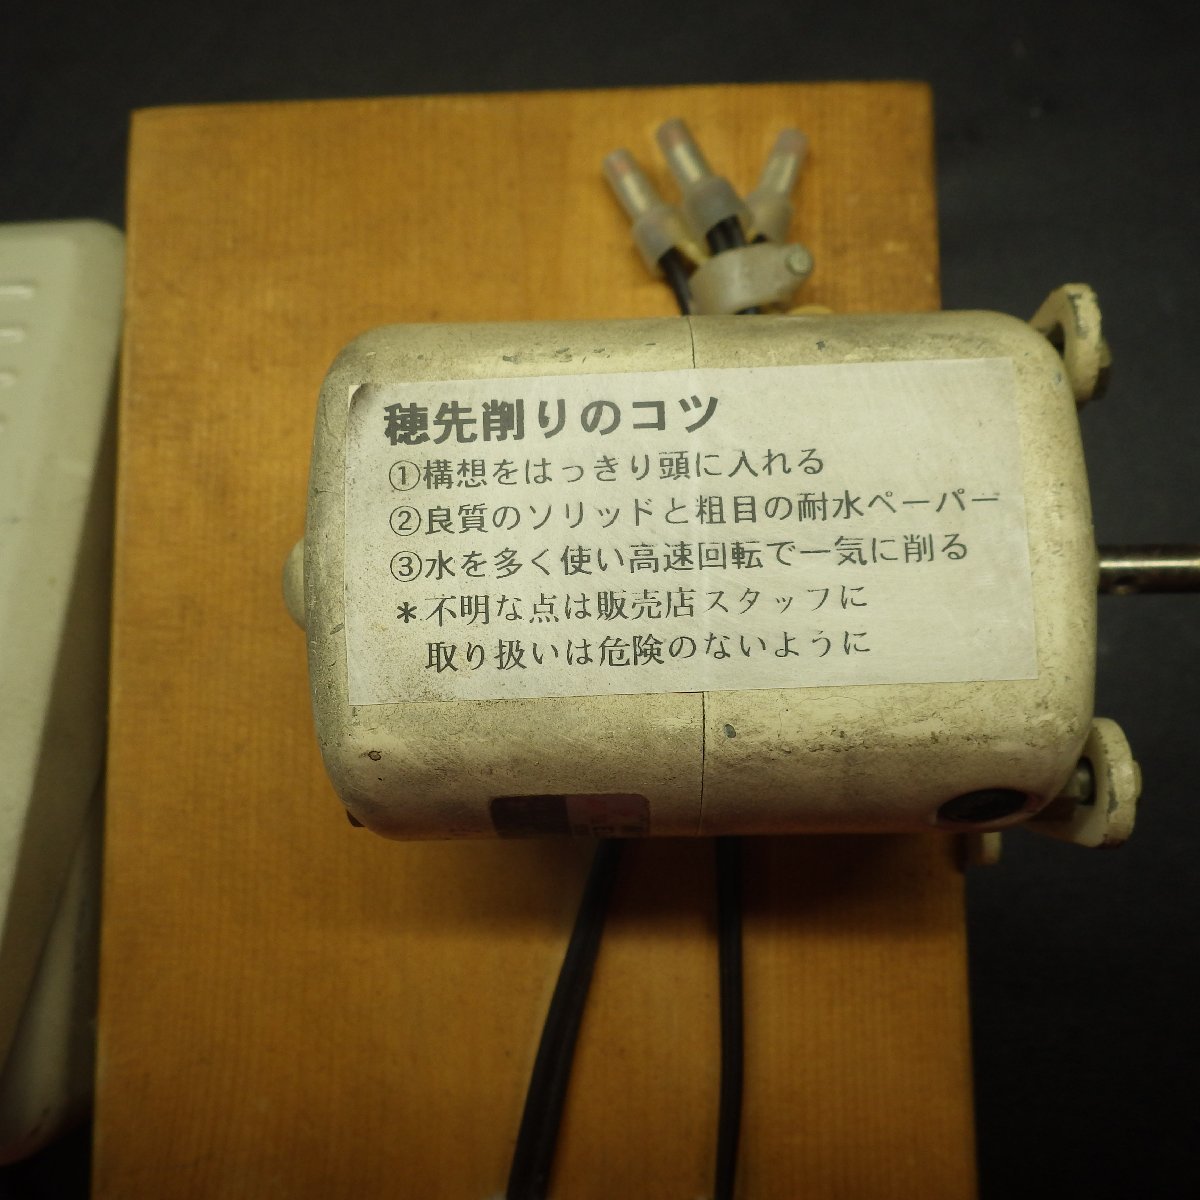 穂先削りのコツ
①構想をはっきり頭に入れる
②良質のソリッドと粗目の耐水ペーパー
③水を多く使い高速回転で一気に削る
＊不明な点は販売店スタッフに
取り扱いは危険のないように